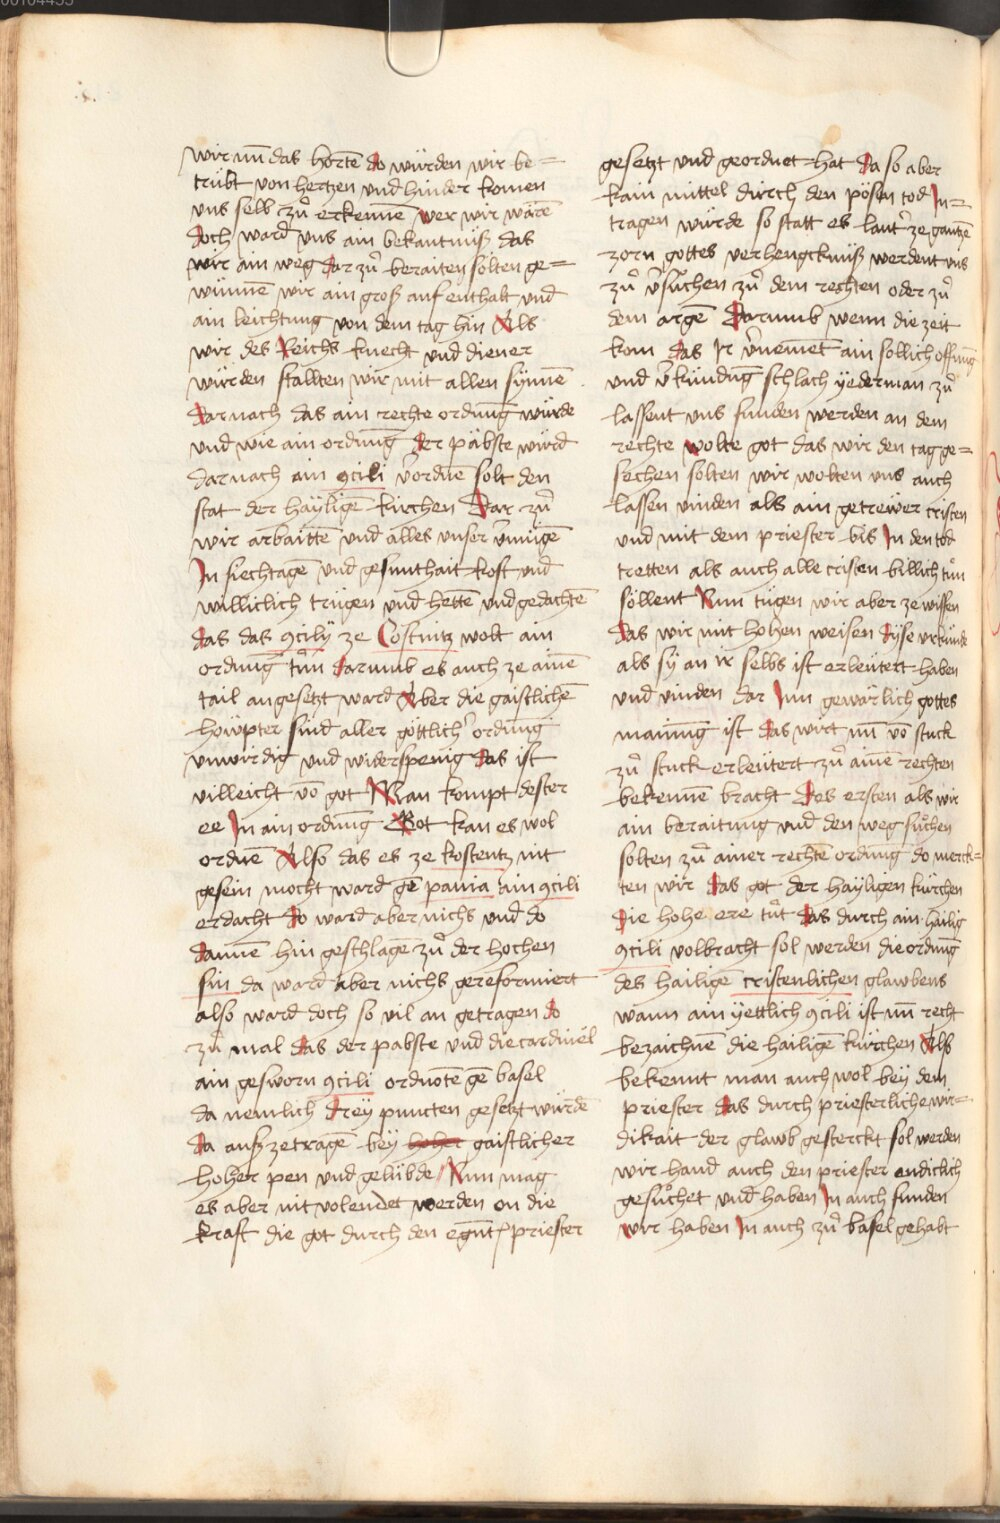 00104455
wir nu͞ das horte͞ do würden wir be=
trübt von hertzen vnd hinder komen
vns selb zů erkenne͞ wer wir wäre͞
doch ward vns ain bekantnüß das
wir ain weg dar zů beraiten sölten ge=
winne͞ wir ain groß aufenthalt vnd
ain leichtung von dem tag hin Als
wir des Reichs knecht vnd diener
würden stallten wir mit allen synne͞
darnach das ain rechte ordnu͞g würde
vnd wie ain ordnu͞g der päbste würd
darnach ain ꝯcili v̓ordne͞ solt den
stat der haÿlige͞ kirchen Dar zů
wir arbaitte͞ vnd alles vnser v̓müge͞
In siechtage͞ vnd gesunthait kost vnd
williclich trügen vnd hette͞ vnd gedachte͞
das das ꝯcilÿ ze Costnitz wolt ain
ordnu͞g tů͞n darumb es auch ze aine͞
tail angesetzt ward Aber die gaistliche͞
höwpter sind aller göttlich̓ ordnu͞g
vnwirdig vnd widerspenig das ist
villeicht vo͞ got Man kompt dester
ee In ain ordnu͞g Got kan es wol
ordne͞ Also das es ze kostentz nit
gesein mocht ward ge͞ pauia ain ꝯcili
erdacht do ward aber nichs vnd do
danne͞ hin geschlage͞ zů der hochen
sin da ward aber nichs gereformiert
also ward doch so vil an getragen do
zu mal das der pabste vnd die cardinel
ain gesworn ꝯcili ordnote͞ ge͞ basel
da nemlich dreÿ puncten gesetzt wurde͞
da auß zetrage͞ beÿ hoher gaistlicher
hoher pen vnd gelübde / Nun mag
es aber nit volendet werden on die
kraft die got durch den egn̄t priester
gesetzt vnd geordnet hat Da so aber
kain mittel dürch den pösen tod In=
tragen würde so statt es laut̓ ze gantze͞
zorn gottes verhengcknüß werdent vns
zů v̓süchen zů dem rechten oder zů
dem arge͞ Darumb wenn die zeit
kom das Ir v̓neme͞t ain sollich offnu͞g
vnd v̓kündu͞g schlach ÿederman zů
lassent vns funden werden an dem
rechte wolte got das wir den tag ge=
sechen sölten wir wolten vns auch
lassen vinden als ain getrewer cristen
vnd mit dem priester bis In den tod
tretten als auch alle cristen billich tůn
söllent Nun tügen wir aber ze wissen
das wir mit hohen weisen dÿse vrkünde
als sÿ an ir selbs ist erleütert haben
vnd vinden dar Inn gewärlich gottes
mainu͞g ist das wirt nu͞ vo͞ stuck
zů stuck erleütert zů aine͞ rechten
bekenne͞ bracht Des ersten als wir
ain beraitung vnd den weg süchen
solten zů ainer rechte͞ ordnu͞g do merck=
ten wir das got der haÿligen kürchen
die hohe ere tůt das durch ain hailig
ꝯcili volbracht sol werden die ordnu͞g
des hailige͞ cristenlichen glawbens
wann ain ÿettlich ꝯcili ist nu͞ recht
bezaichne͞ die hailige͞ kürchen Als
bekennt man auch wol beÿ dem
priester das durch priesterliche wir=
dikait der glawb gesterckt sol werden
wir hand auch den priester endiclich
gesůchet vnd haben In auch funden
wir haben In auch zů basel gehabt